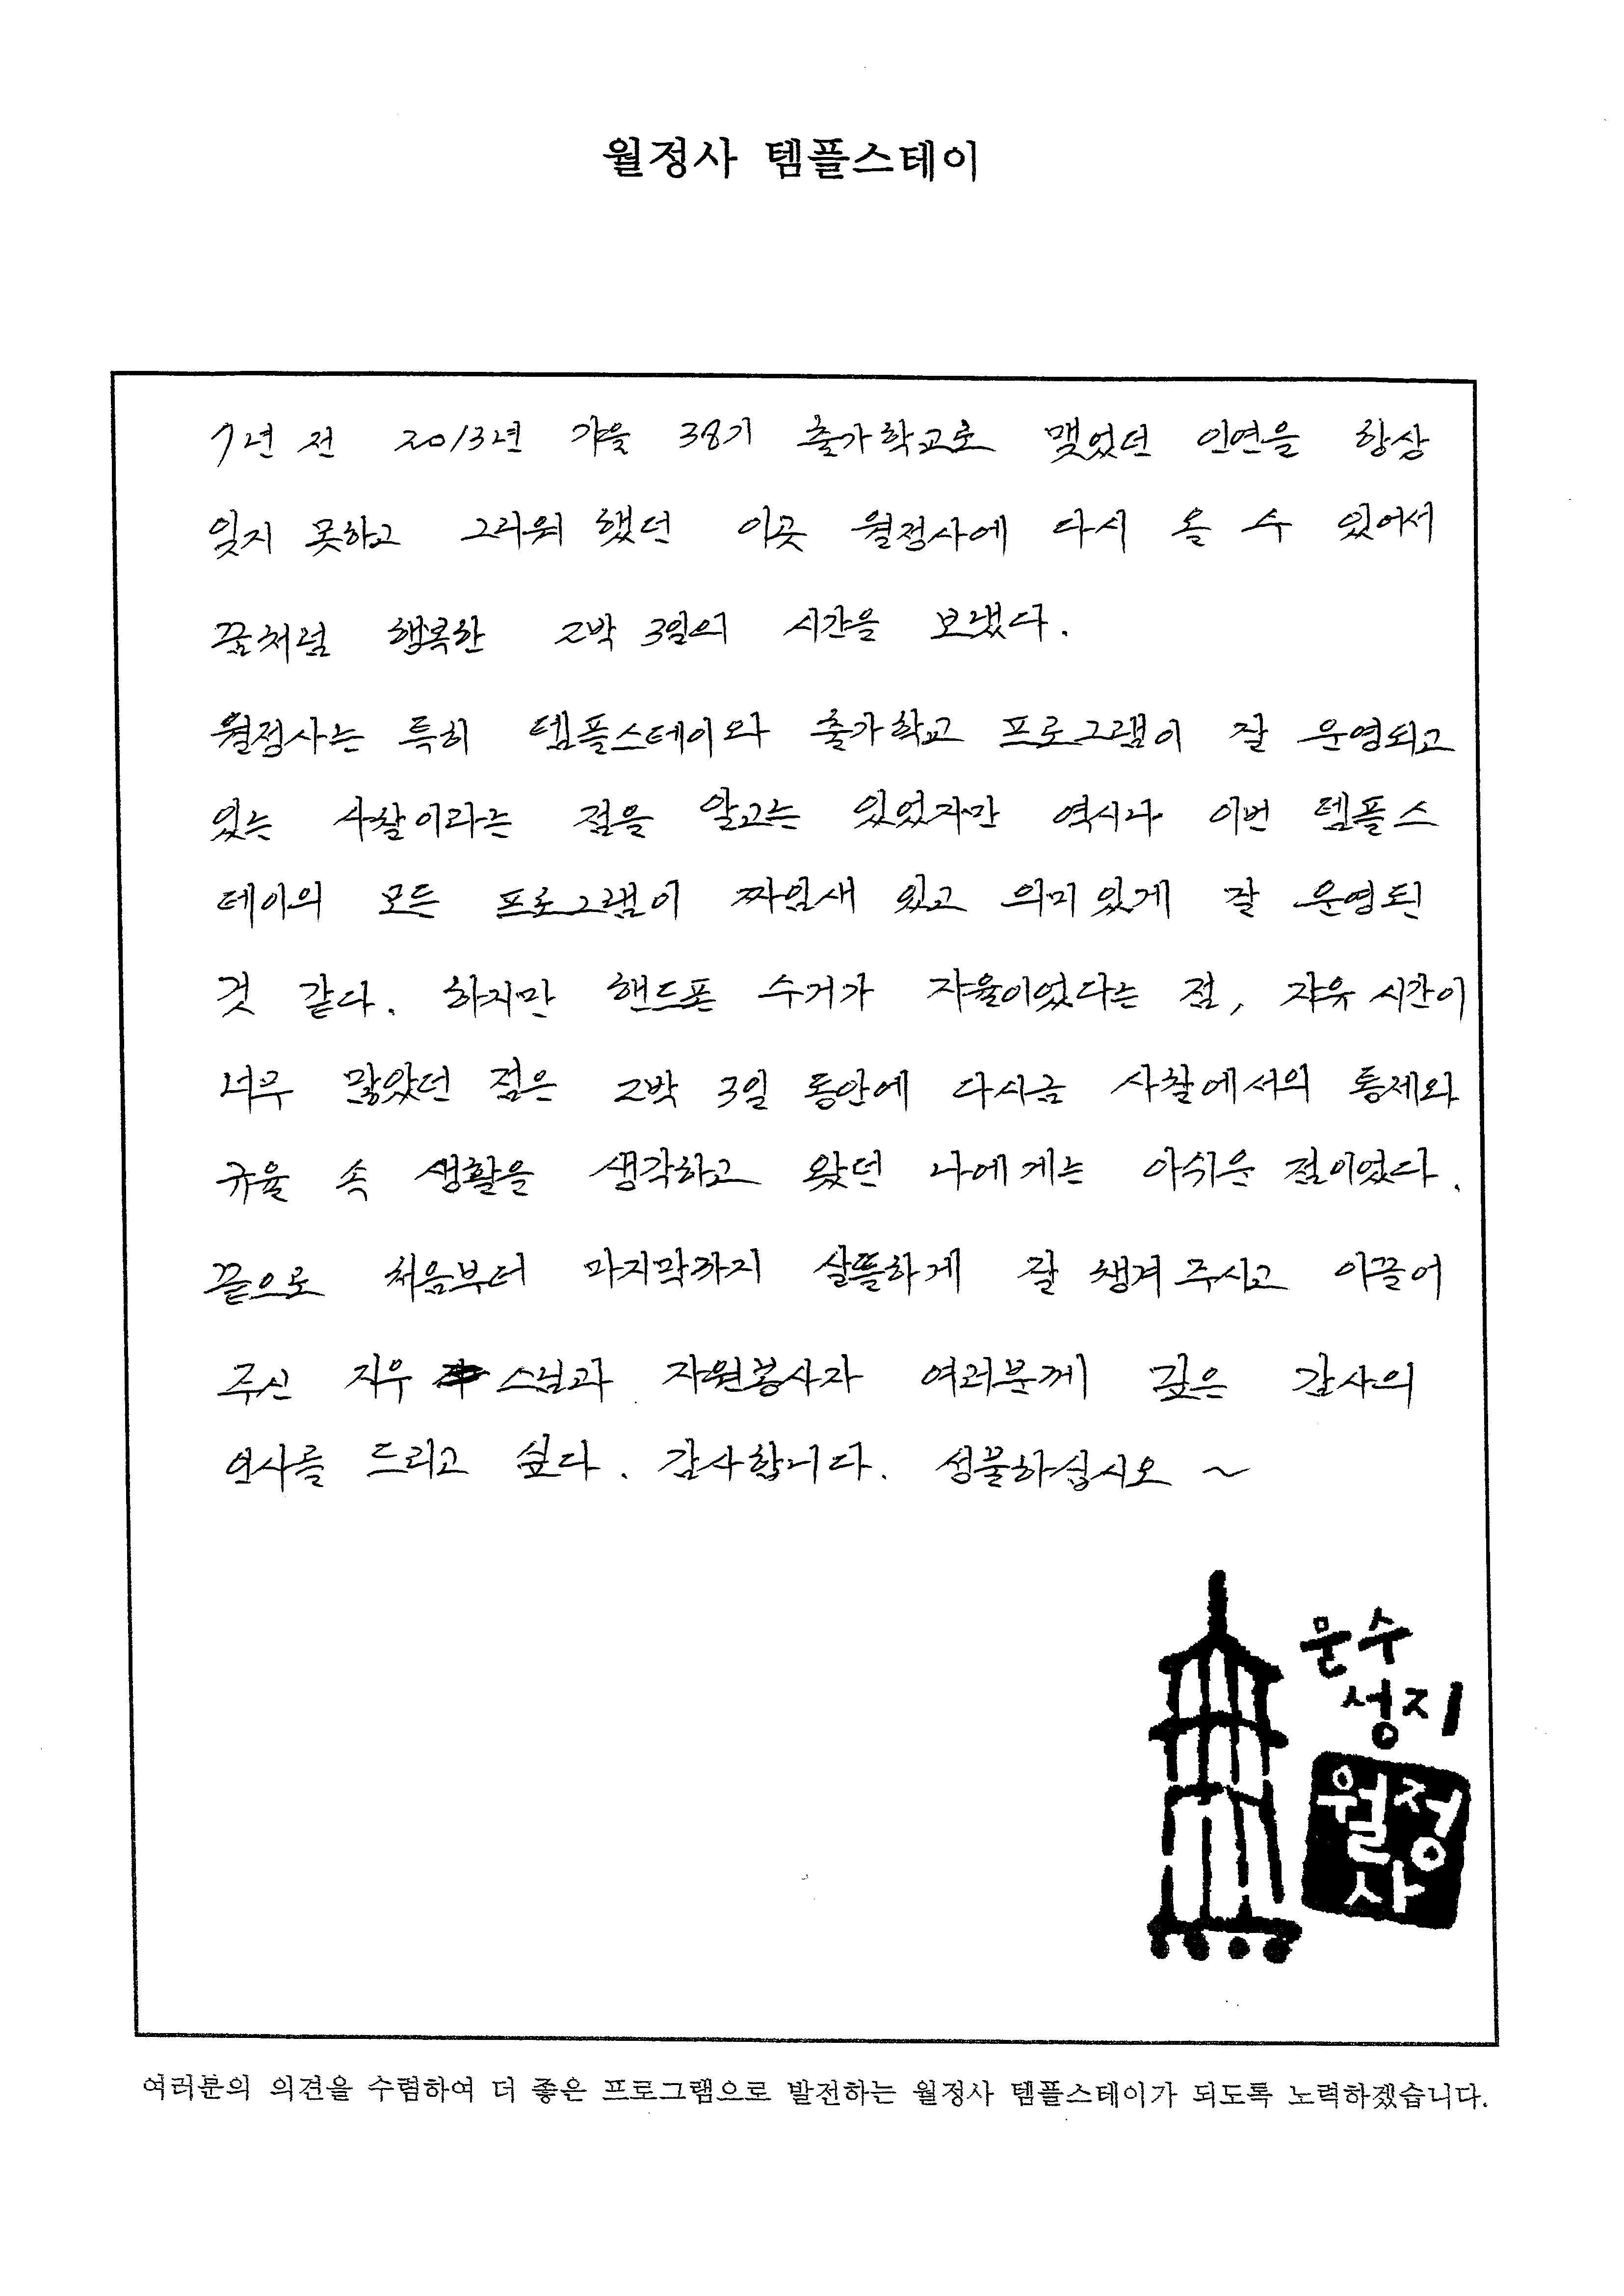 월정사 템플스테이
7년 전 2013년 가을 38기 출가학교로 맺었던 인연을 항상
잊지 못하고 그리워 했던 이곳 월정사에 다시 올 수 있어서
꿈처럼 행복한 2박 3일의 시간을 보냈다.
월정사는 특히 템플스테이와 출가학교 프로그램이 잘 운영되고
있는 사찰이라는 점을 알고는 있었지만 역시나 이번 템플스
테이의 모든 프로그램이 짜임새 있고 의미있게 잘 운영된
것 같다. 하지만 핸드폰 수거가 자율이었다는 점, 자유 시간이
너무 많았던 점은 2박 3일 동안에 다시금 사찰에서의 통제와
규율 속 생활을 생각하고 왔던 나에게는 아쉬운 점이었다.
끝으로 처음부터 마지막까지 살뜰하게 잘 챙겨주시고 이끌어
주신 지우 스님과 자원봉사자 여러분께 깊은 감사의
인사를 드리고 싶다. 감사합니다. 성불하십시오 ~
문수
성지
월정
사
여러분의 의견을 수렴하여 더 좋은 프로그램으로 발전하는 월정사 템플스테이가 되도록 노력하겠습니다.